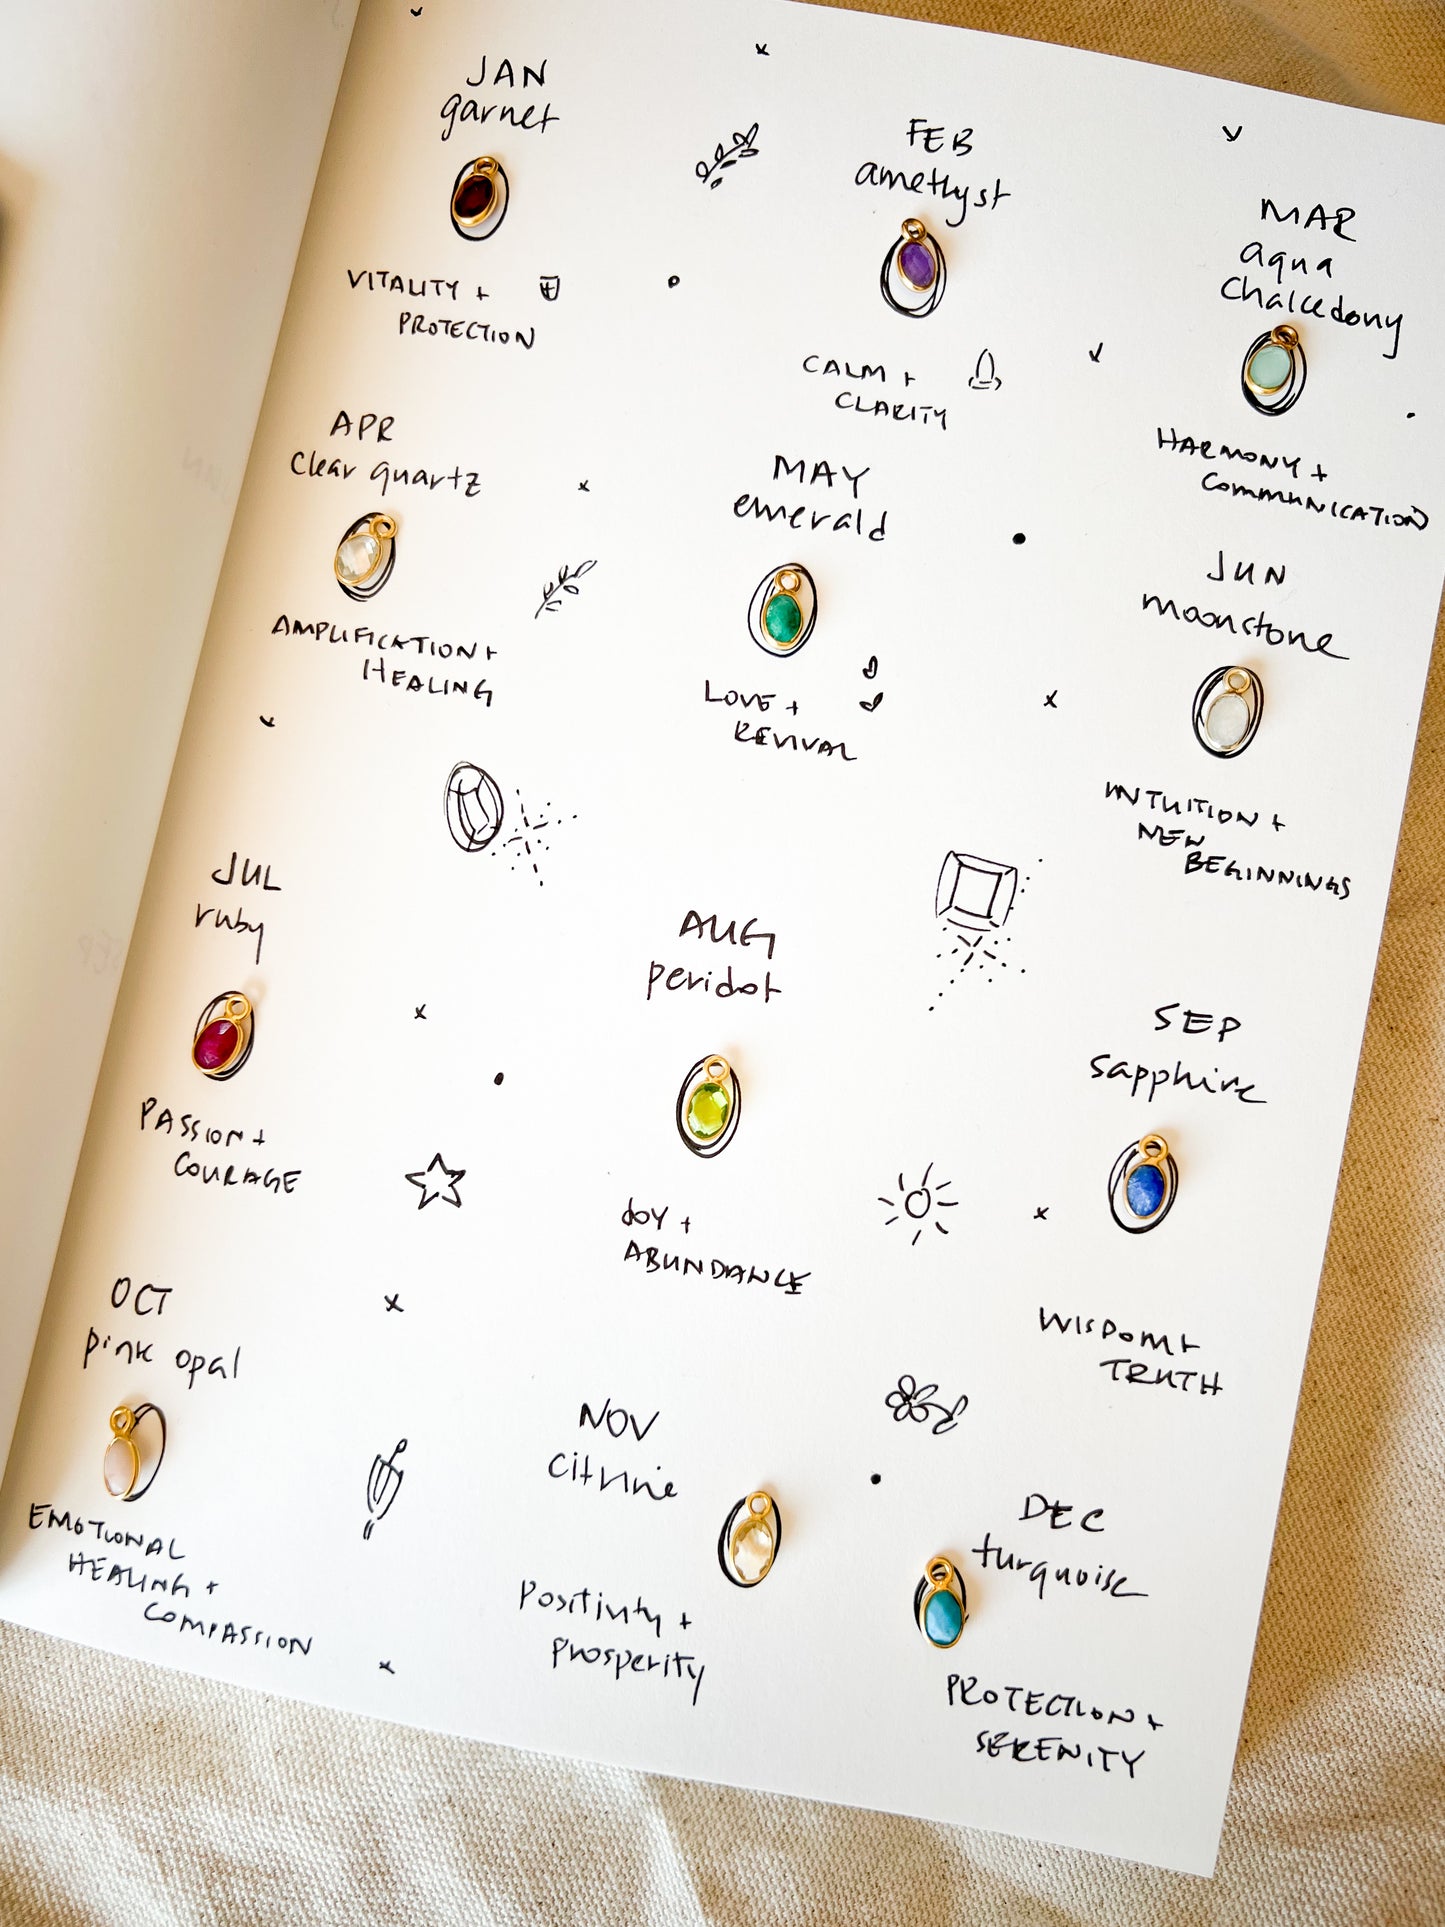 JAN
garnet
VITALITY +
PROTECTION
FEB
amethyst
CALM +
CLARITY
MAR
aqua
chalcedony
HARMONY +
COMMUNICATION
APR
clear quartz
AMPLIFICATION +
HEALING
MAY
emerald
LOVE +
REVIVAL
JUN
moonstone
INTUITION +
NEW
BEGINNINGS
JUL
ruby
PASSION +
COURAGE
AUG
peridot
JOY +
ABUNDANCE
SEP
sapphire
WISDOM +
TRUTH
OCT
pink opal
EMOTIONAL
HEALING +
COMPASSION
NOV
citrine
Positivity +
Prosperity
DEC
turquoise
PROTECTION +
SERENITY